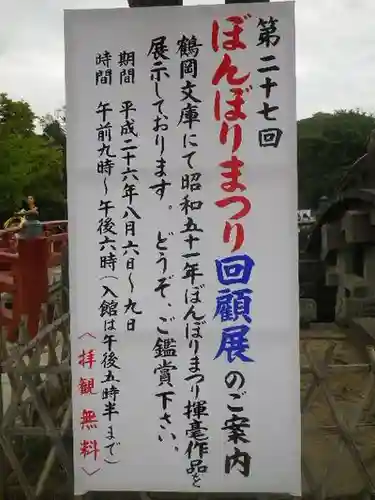 第二十七回
ぼんぼりまつり回顧展のご案内
鶴岡文庫にて昭和五十一年ぼんぼりまつり揮毫作品を
展示しております。どうぞ、ご鑑賞下さい。
期間 平成二十六年八月六日～九日
時間 午前九時～午後六時(入館は午後五時半まで)
〈拝観無料〉